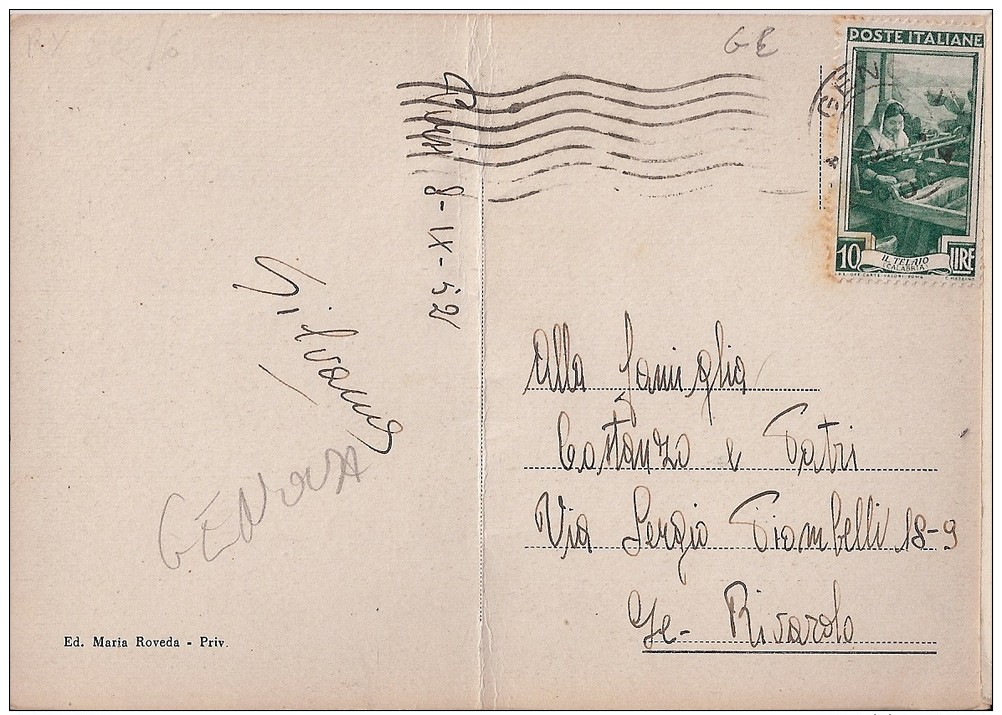 GE
POSTE ITALIANE
GEN
10 LIRE
IL TELAIO
(CALABRIA)
8-IX-52
Silvano
GENOVA
Alla famiglia
Costanzo e Patri
Via Sergio Piombelli 18-9
Ge- Rivarolo
Ed. Maria Roveda - Priv.